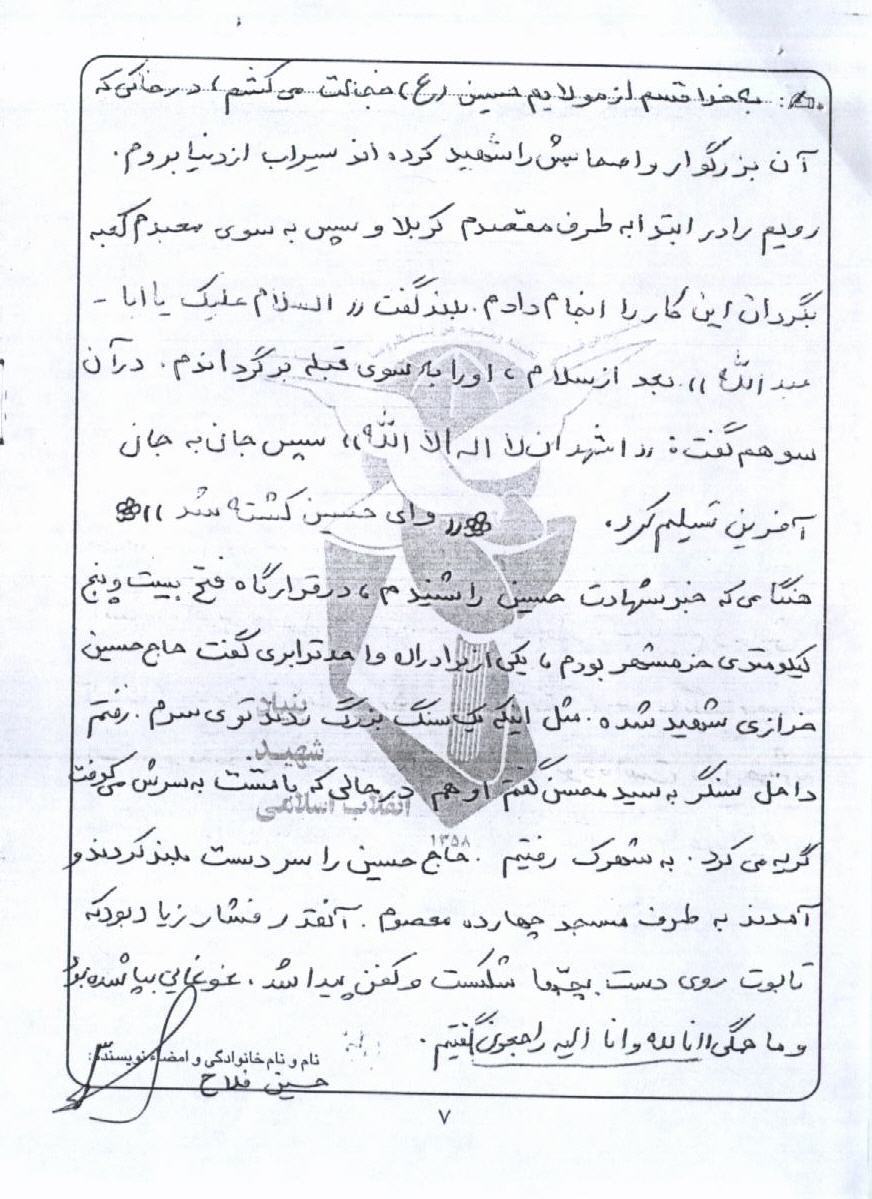 به خدا قسم از مولایم حسین (ع) خجالت می کشم، در حالی که
آن بزرگوار و اصحابش را شهید کرده اند سیراب از دنیا بروم.
رویم را در ابتدا به طرف مقصدم کربلا و سپس به سوی معبدم کعبه
بگردان این کار را انجام دادم. بلند گفت « السلام علیک یا ابا -
عبدالله ». بعد از سلام، او را به سوی قبله برگرداندم. در آن
سو هم گفت: « اشهد ان لا اله الا الله » سپس جان به جان
آفرین تسلیم کرد. « وای حسین کشته شد »
هنگامی که خبر شهادت حسین را شنیدم، در قرارگاه فتح بیست و پنج
کیلومتری خرمشهر بودم، یکی از برادران واحد ترابری گفت حاج حسین
خرازی شهید شده. مثل اینکه یک سنگ بزرگ زدند توی سرم. رفتم
داخل سنگر به سید محسن گفتم او هم در حالی که با مشت به سرش می کوفت
گریه می کرد. به شهرک رفتیم. حاج حسین را سر دست بلند کردند و
آمدند به طرف مسجد چهارده معصوم. آنقدر فشار زیاد بود که
تابوت روی دست بچه ها شکست و کفن پیدا شد. غوغایی بپا شده بود
و ما همگی انا لله و انا الیه راجعون گفتیم.
نام و نام خانوادگی و امضاء نویسنده:
حسین فلاح
بنیاد
شهید
انقلاب اسلامی
۱۳۵۸
۷